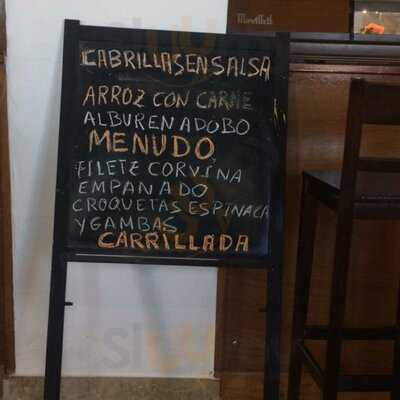 CABRILLAS EN SALSA
ARROZ CON CARNE
ALBUR EN ADOBO
MENUDO
FILETE CORVINA
EMPANADO
CROQUETAS ESPINACA
Y GAMBAS
CARRILLADA